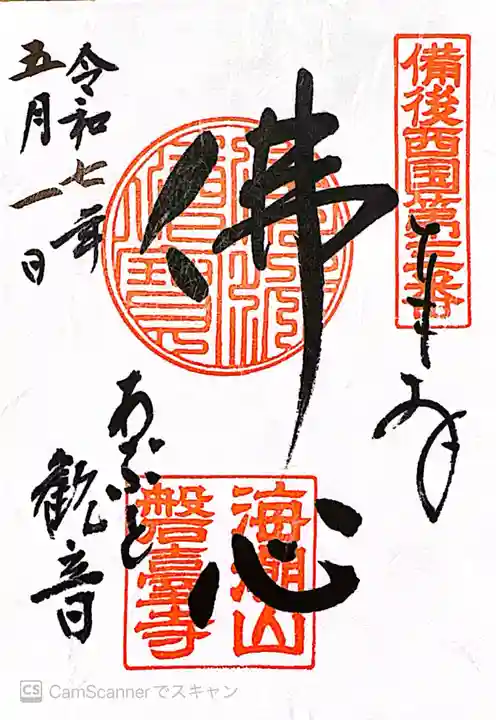 備後西国第三番
奉拝
佛心
海潮山
磐臺寺
あぶと
観音
令和七年
五月一日
CS CamScannerでスキャン